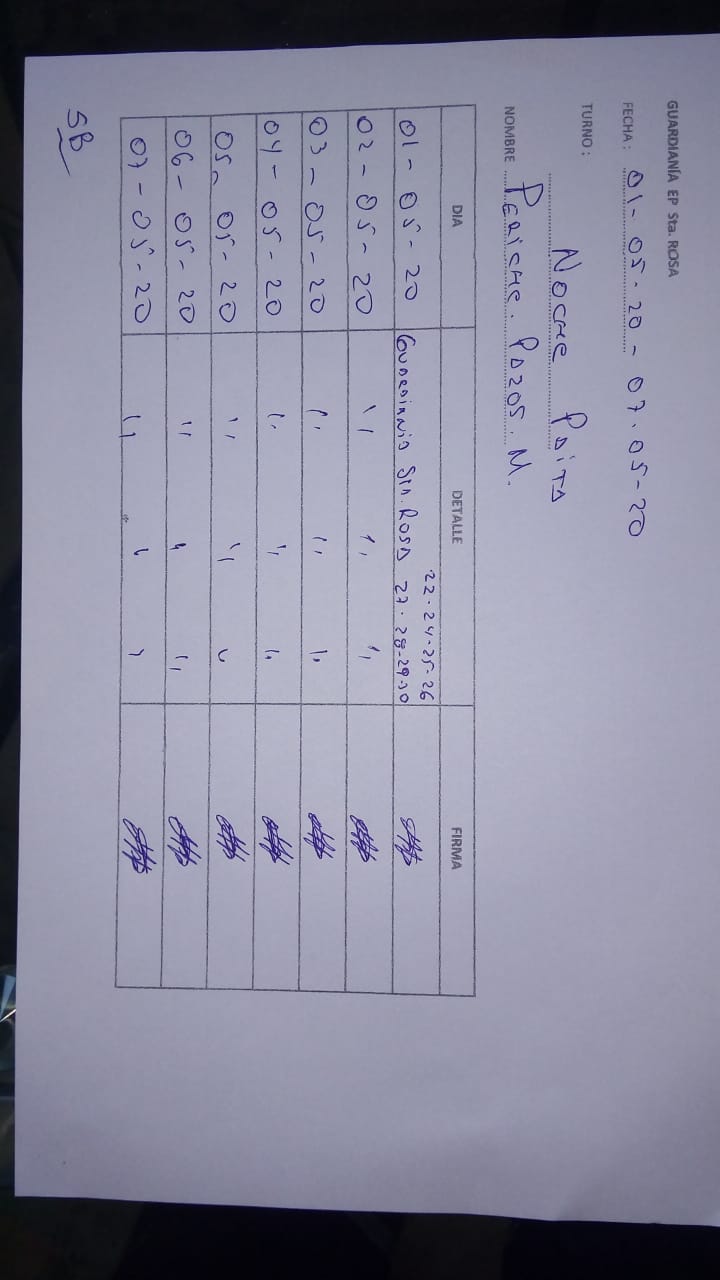 GUARDIANÍA EP Sta. ROSA
FECHA: 01-05-20 - 07.05-20
TURNO: NOCHE PAITA
NOMBRE PERICHE. PAZOS. M.
DIA DETALLE FIRMA
22-24-25-26
01-05-20 GUARDIANIA STA. ROSA 27-28-29-30
02-05-20 " " "
03-05-20 " " "
04-05-20 " " "
05-05-20 " " "
06-05-20 " " "
07-05-20 " " "
SB